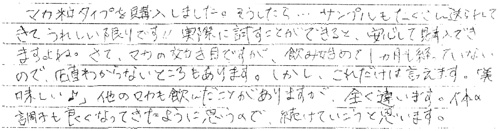 マカ粒タイプを購入しました。そうしたら…サンプルもたくさん送られて
きてうれしい限りです!! 実際に試すことができると、安心して購入でき
ますよね。さて、マカの効き目ですが、飲み始めて1カ月も経っていない
ので、正直わからないところもあります。しかし、これだけは言えます。「美
味しい」他のマカも飲んだことがありますが、全く違います。体の
調子も良くなってきたように思うので、続けていこうと思います。